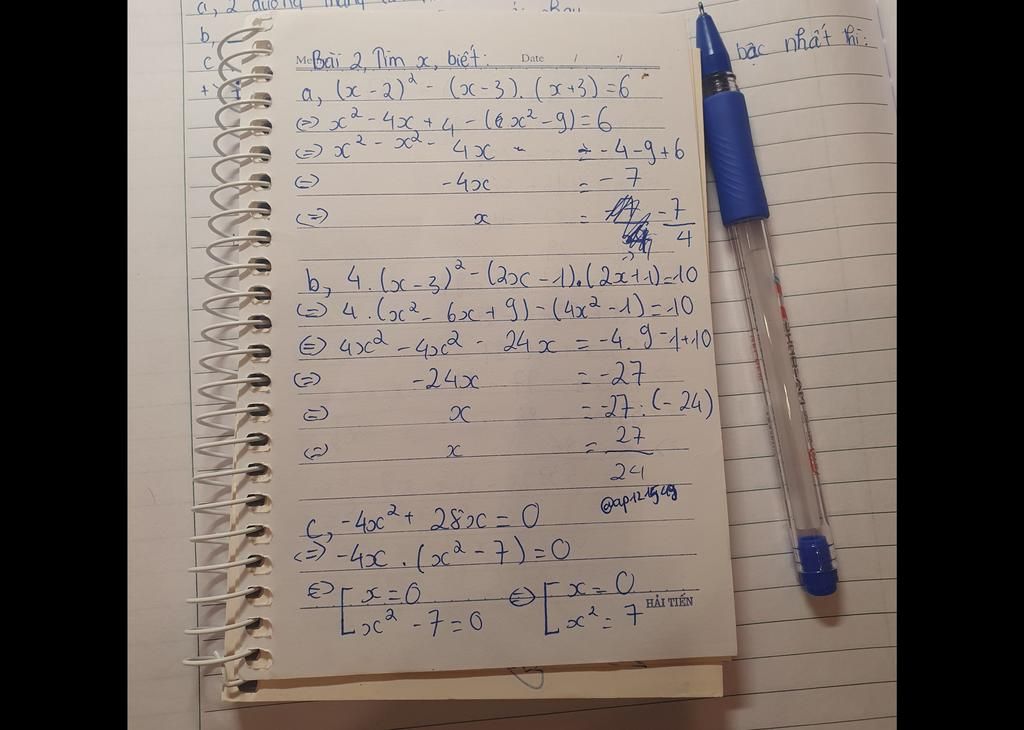 b,
c
bậc nhất thì:
Date / /
Bài 2, Tìm x, biết:
a, (x - 2)² - (x - 3). (x + 3) = 6
(=) x² - 4x + 4 - (x² - 9) = 6
(=) x² - x² - 4x = - 4 - 9 + 6
(=) -4x = - 7
(=) x = -7/4
b, 4. (x - 3)² - (2x - 1). (2x + 1) = 10
(=) 4. (x² - 6x + 9) - (4x² - 1) = 10
(=) 4x² - 4x² - 24x = -4. 9 - 1 + 10
(=) -24x = -27
(=) x = -27 : (-24)
(=) x = 27/24
c, -4x² + 28x = 0
(=) -4x . (x² - 7) = 0
(=) [ x = 0 (=) [ x = 0
x² - 7 = 0 x² = 7
HẢI TIẾN